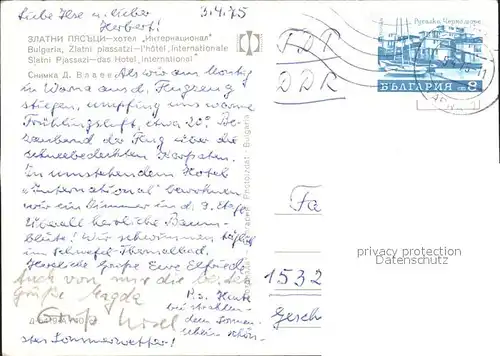 Liebe Ilse u. lieber
Herbert! 3.4.75
ЗЛАТНИ ПЯСЪЦИ—хотел „Интернационал"
Bulgaria, Zlatni piassatzi—l'hôtel „Internationale
Slatni Pjassazi—das Hotel „International"
Снимка Д. Владев
Als wir am Montag
in Warna aus d. Flugzeug
stiegen, empfing uns warme
Frühlingsluft, etwa 20°. Be-
zaubernd der Flug über die
schneebedeckten Karpaten.
Im umstehendem Hotel
"international" bewohnen
wir ein Zimmer in d. 9. Etage
Überall herrliche Baum-
blüte! Wir schwimmen täglich
im Schwefel-Thermalbad.
Herzliche Grüße Eure Elfriede
Auch von mir die besten
Grüße Magda
Gruß Ursel
P.s. Heute
bei strahlen-
dem Sonnen-
schein schön-
stes Sommerwetter!
Photoizdat · Bulgaria
ГДР
DDR
Fa
1532
Gesch
БЪЛГАРИЯ
8
privacy protection
Datenschutz